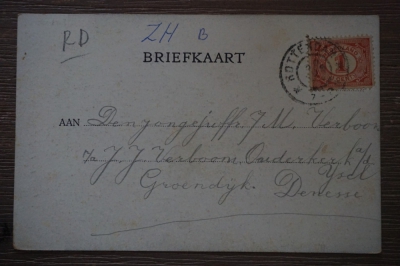 RD
ZH B
BRIEFKAART
ROTTERDAM
1
AAN Den jongejuffr J. M. Verboom
J. J. Verboom Ouderkerk a/d
Ysel
Groendijk.